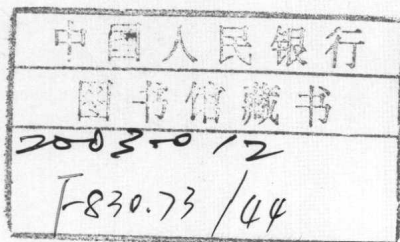 中国人民银行
图书馆藏书
2003-012
F-830.73/44